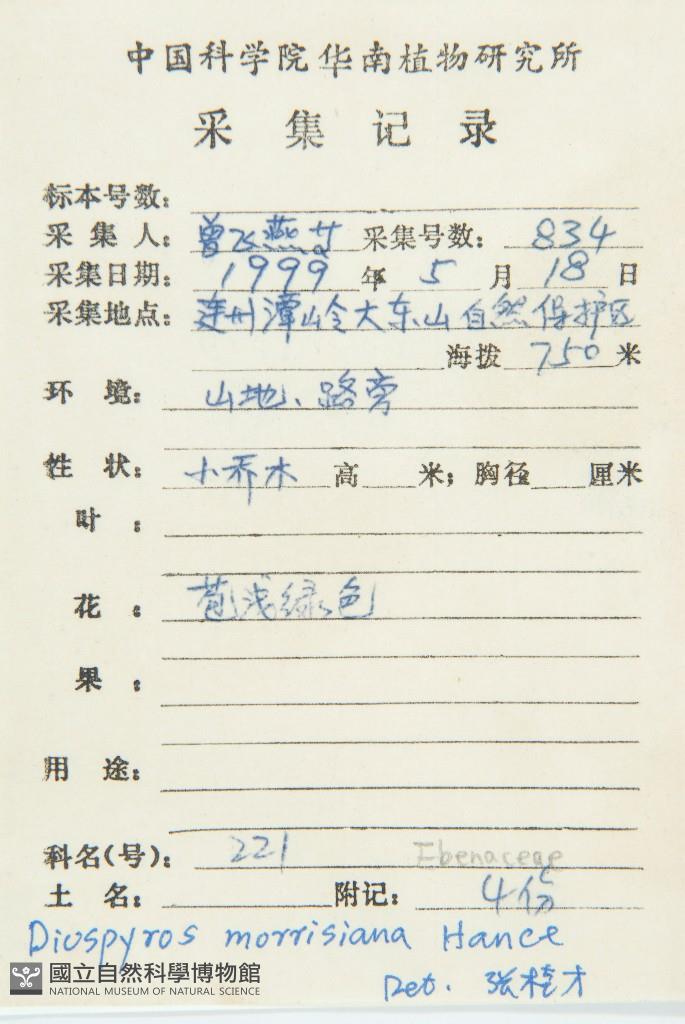 中国科学院华南植物研究所
采集记录
标本号数:
采集人: 曾飞燕 采集号数: 834
采集日期: 1999 年 5 月 18 日
采集地点: 连州潭岭大东山自然保护区
海拨 750 米
环境: 山地、路旁
性状: 小乔木 高 米; 胸径 厘米
叶:
花: 苞浅绿色
果:
用途:
科名(号): 221 Ebenaceae
土名: 附记: 4份
Diospyros morrisiana Hance
Det. 张桂才
國立自然科學博物館
NATIONAL MUSEUM OF NATURAL SCIENCE